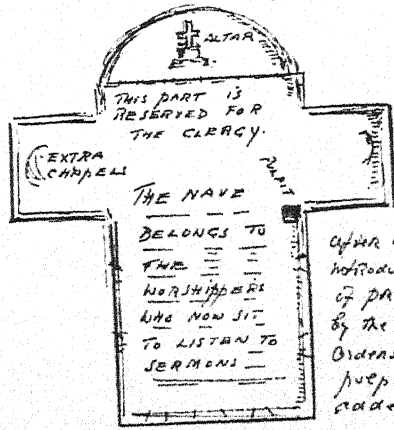 ALTAR
THIS PART IS
RESERVED FOR
THE CLERGY.
EXTRA
CHAPELS
PULPIT
THE NAVE
BELONGS TO
THE
WORSHIPPERS
WHO NOW SIT
TO LISTEN TO
SERMONS
after
of
by the
Orders